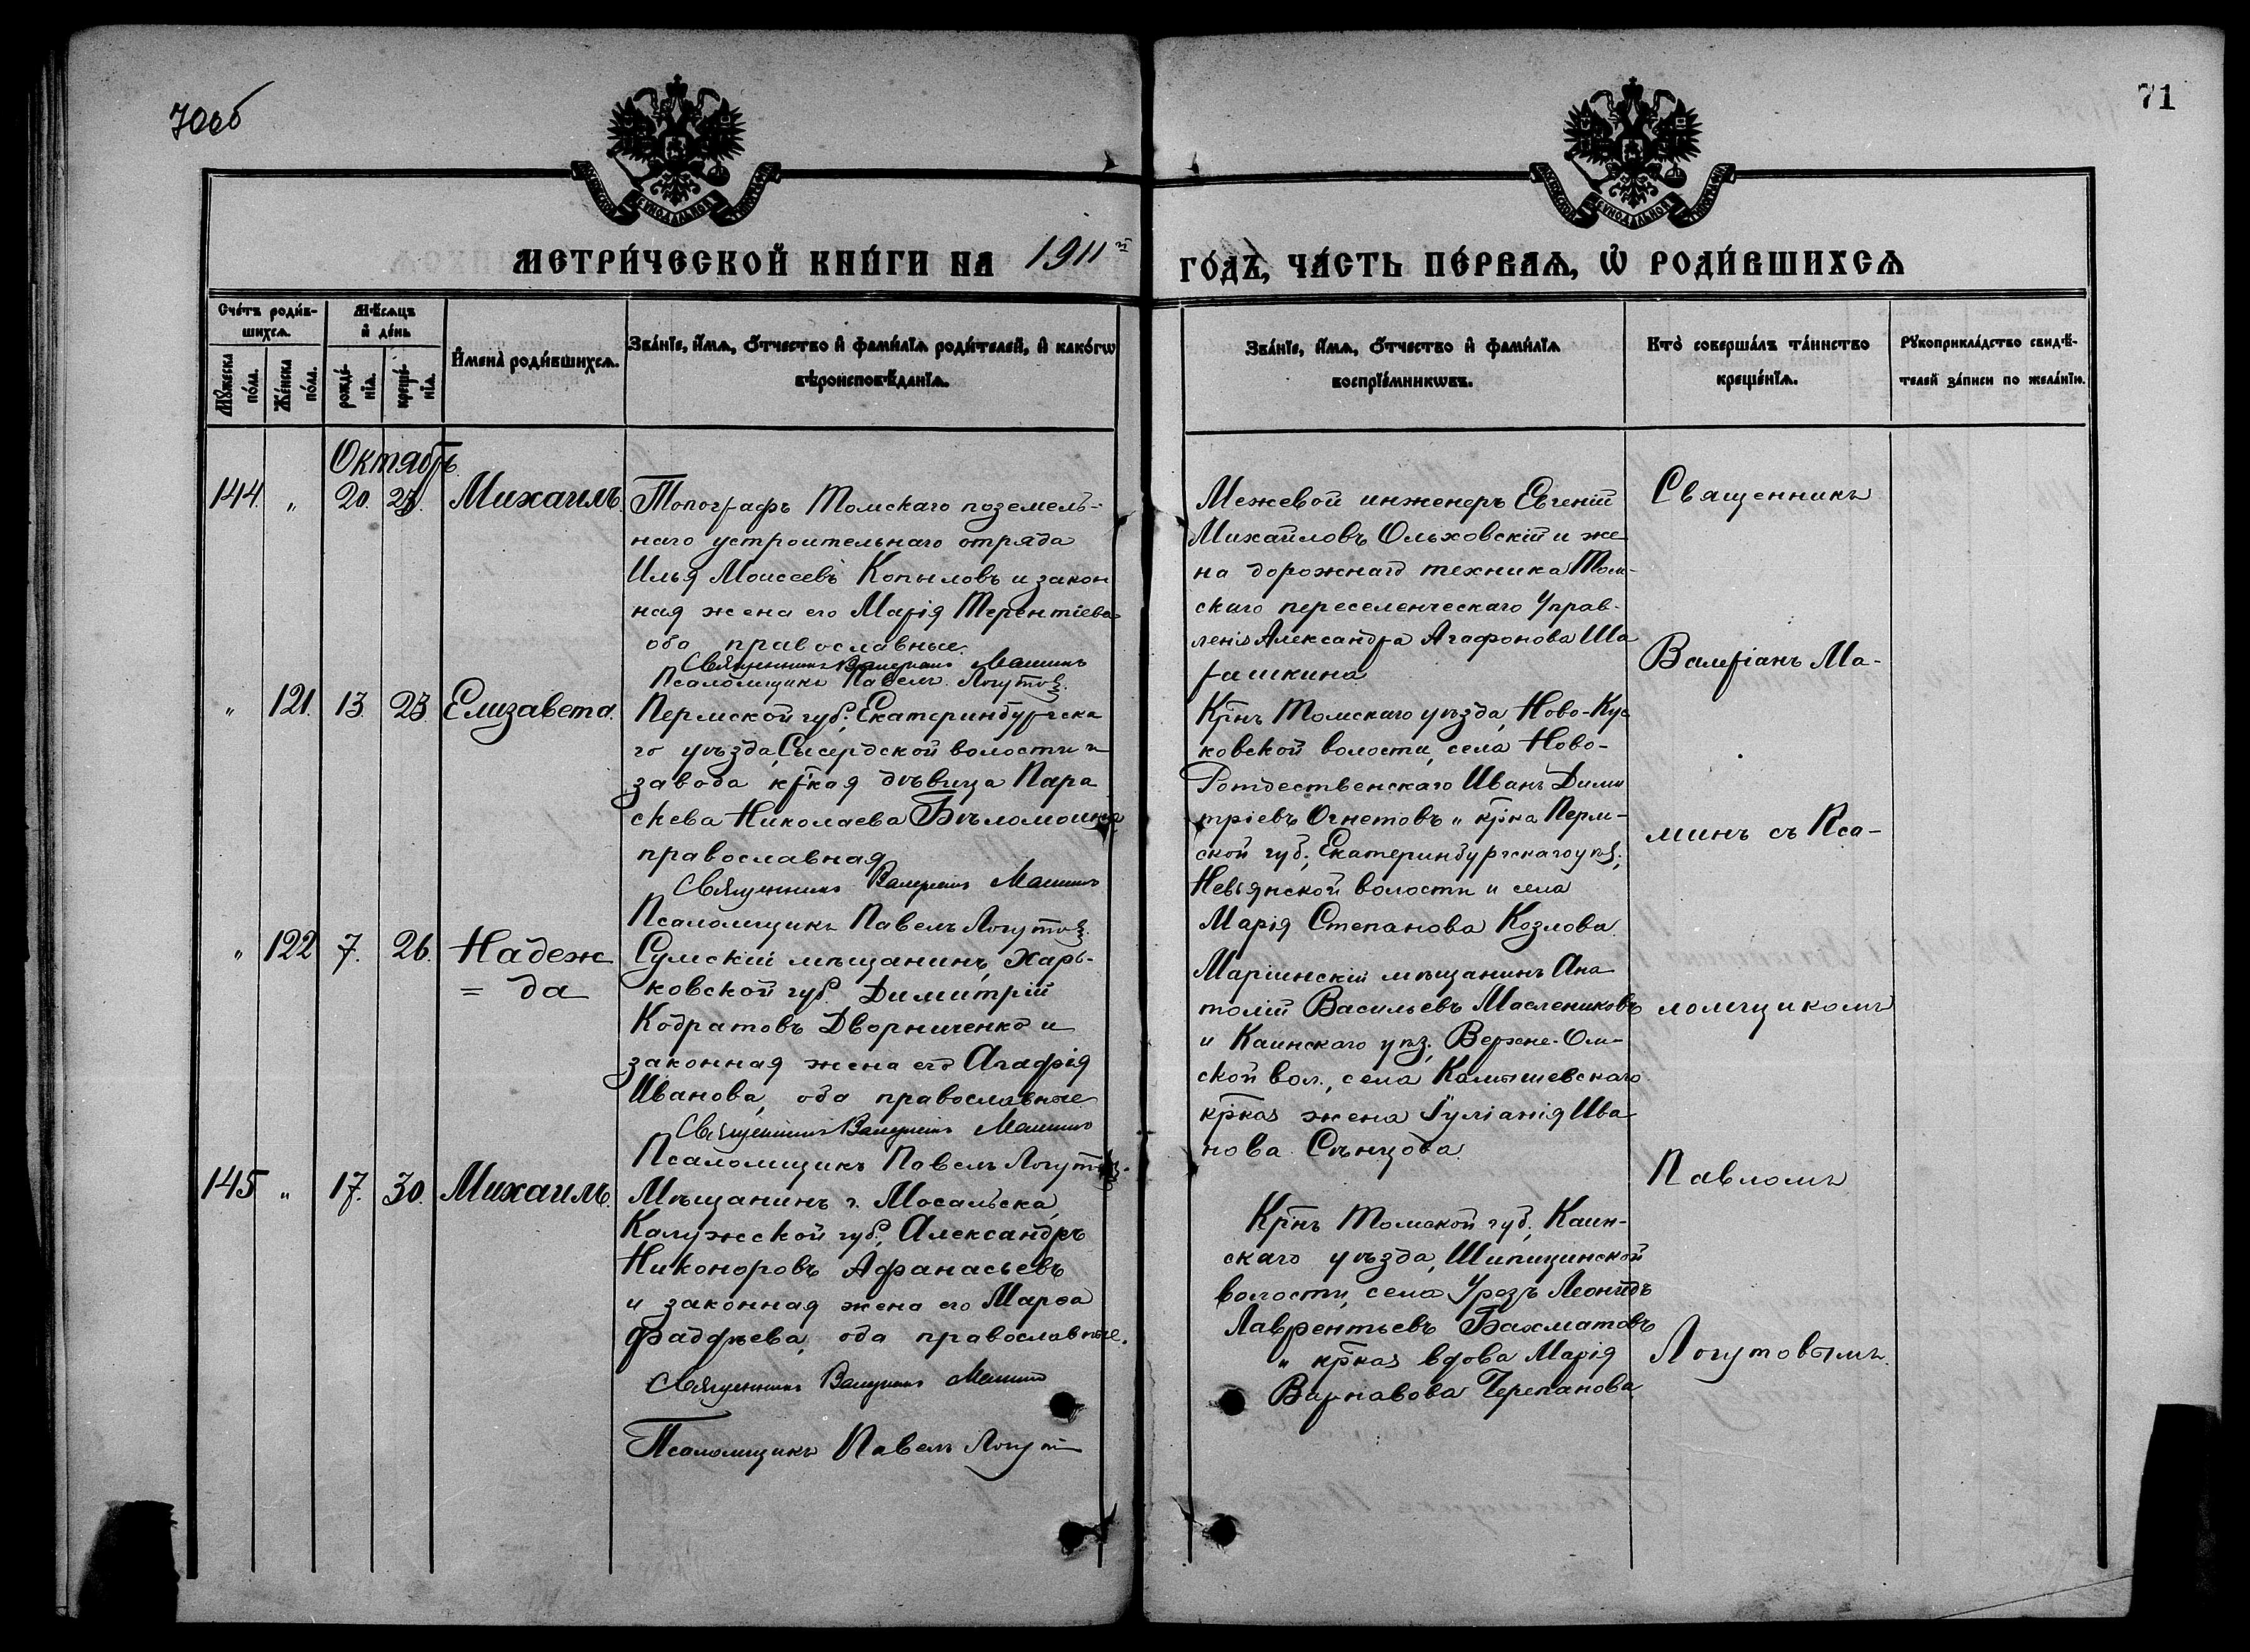 70об
71
МЕТРИ́ЧЕСКОЙ КНИ́ГИ НА 1911й
ГО́ДЪ, ЧА́СТЬ ПЕ́РВАѦ, Ѡ҆ РОДИ́ВШИХСѦ
Сче́тъ роди́в-
шихсѧ.
Мѣ́сѧцъ
и҆ де́нь
Мꙋ́жеска
по́ла.
Же́нска
по́ла.
рожде́-
нїѧ.
креще́-
нїѧ.
И҆мена̀ роди́вшихсѧ.
Зва́нїе, и҆́мѧ, ѻ҆́тчество и҆ фами́лїѧ роди́телей, и҆ како́гѡ
вѣроисповѣ́данїѧ.
Зва́нїе, и҆́мѧ, ѻ҆́тчество и҆ фами́лїѧ
воспрїе́мникѡвъ.
Кто̀ соверша́лъ та́инство
креще́нїѧ.
Рꙋкоприкла́дство свидѣ́-
телей за́писи по жела́нїю.
Октябрь
144. " 20. 23. Михаилъ.
Топографъ Томскаго поземель-
наго устроительнаго отряда
Илья Моисеевъ Копыловъ и закон
ная жена его Марія Терентіева
оба православные.
Священникъ Валеріанъ Маминъ
Псаломщикъ Павелъ Логутов.
Межевой инженеръ Евгеній
Михайловъ Ольховскій и же
на дорожнаго техника Том-
скаго переселенческаго Управ-
ленія Александра Агафонова Ша
рашкина
" 121. 13. 23. Елизавета.
Пермской губ., Екатеринбургска
го уѣзда, Сысердской волости и
завода кр̄кая дѣвица Пара
скева Николаева Бѣломоина
православная
Священникъ Валеріанъ Маминъ
Псаломщикъ Павелъ Логутов.
Кр̄нъ Томскаго уѣзда, Ново-Кус
ковской волости, села Ново-
Рождественскаго Иванъ Дими
тріевъ Огнетовъ и кр̄ка Перм-
ской губ., Екатеринбургскаго уѣз.,
Невьянской волости и села
Марія Степанова Козлова.
" 122 7. 26. Надеж
= да
Сумскій мѣщанинъ, Харь-
ковской губ. Димитрій
Кодратовъ Дворниченко и
законная жена его Агафія
Иванова, оба православные
Священникъ Валеріанъ Маминъ
Псаломщикъ Павелъ Логутов.
Маріинскій мѣщанинъ Ана
толій Васильевъ Маслениковъ
и Каинскаго уѣз., Верхне-Ом-
ской вол., села Камышевскаго
кр̄кая жена Іуліанія Ива
нова Сѣнцова.
145 " 17. 30. Михаилъ.
Мѣщанинъ г. Мосальска,
Калужской губ., Александръ
Никоноровъ Афанасьевъ
и законная жена его Марѳа
Фаддѣева, оба православные.
Священникъ Валеріанъ Маминъ
Псаломщикъ Павелъ Логутов
Кр̄нъ Томской губ., Каин-
скаго уѣзда, Шипицинской
волости, села Урезъ Леонидъ
Лаврентьевъ Бахматовъ
и кр̄кая вдова Марія
Варнавова Черепанова.
Священникъ
Валеріанъ Ма-
минъ съ Пса-
ломщикомъ
Павломъ
Логутовымъ.